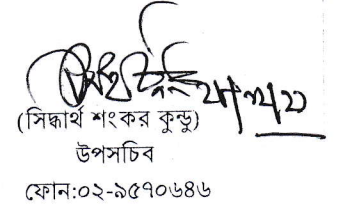 (সিদ্ধার্থ শংকর কুন্ডু)
উপসচিব
ফোন:০২-৯৫৭০৬৪৬